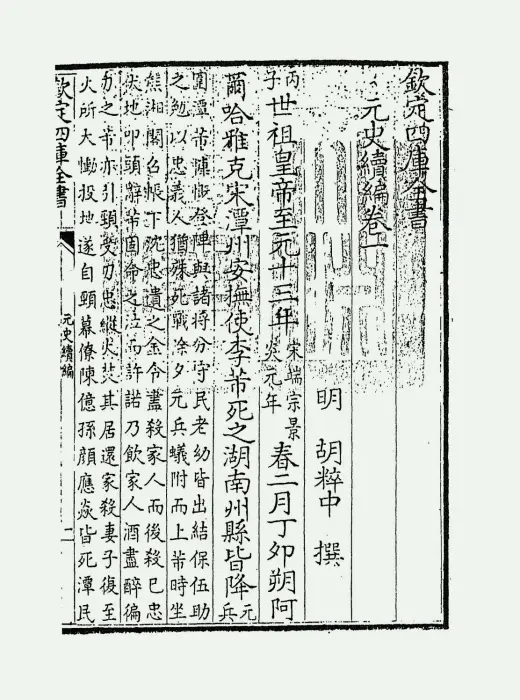 欽定四庫全書
元史續編卷一
明 胡粹中 撰
丙子 世祖皇帝至元十三年 宋端宗景炎元年 春二月丁卯朔阿
爾哈雅克宋潭州安撫使李芾死之湖南州縣皆降 元兵
圍潭芾慷慨登陴與諸將分守民老幼皆出結保伍助
之勉以忠義人猶殊死戰除夕元兵蟻附而上芾時坐
熊湘閣召帳下沈忠遺之金令盡殺家人而後殺巳忠
伏地叩頭辭芾固命之泣而許諾乃飲家人酒盡醉徧
刃之芾亦引頸受刃忠縱火焚其居還家殺妻子復至
火所大慟投地遂自頸幕僚陳億孫顔應焱皆死潭民
欽定四庫全書
元史續編
二